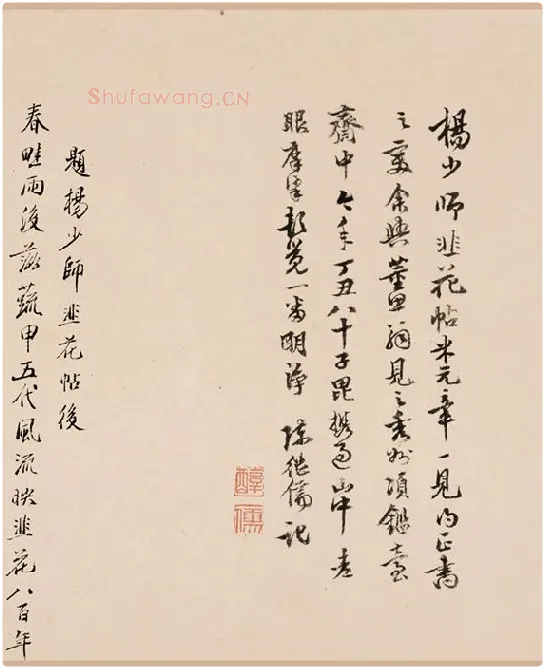 Shufawang.CN
楊少師韭花帖米元章一見正書
之變余與董思翁見之秀州項鑑臺
齋中今年丁丑八十子毘攜過山中老
眼摩挲覺一番明淨 陳繼儒記
醇儒
題楊少師韭花帖後
春畦雨後蔬甲五代風流映韭花八百年